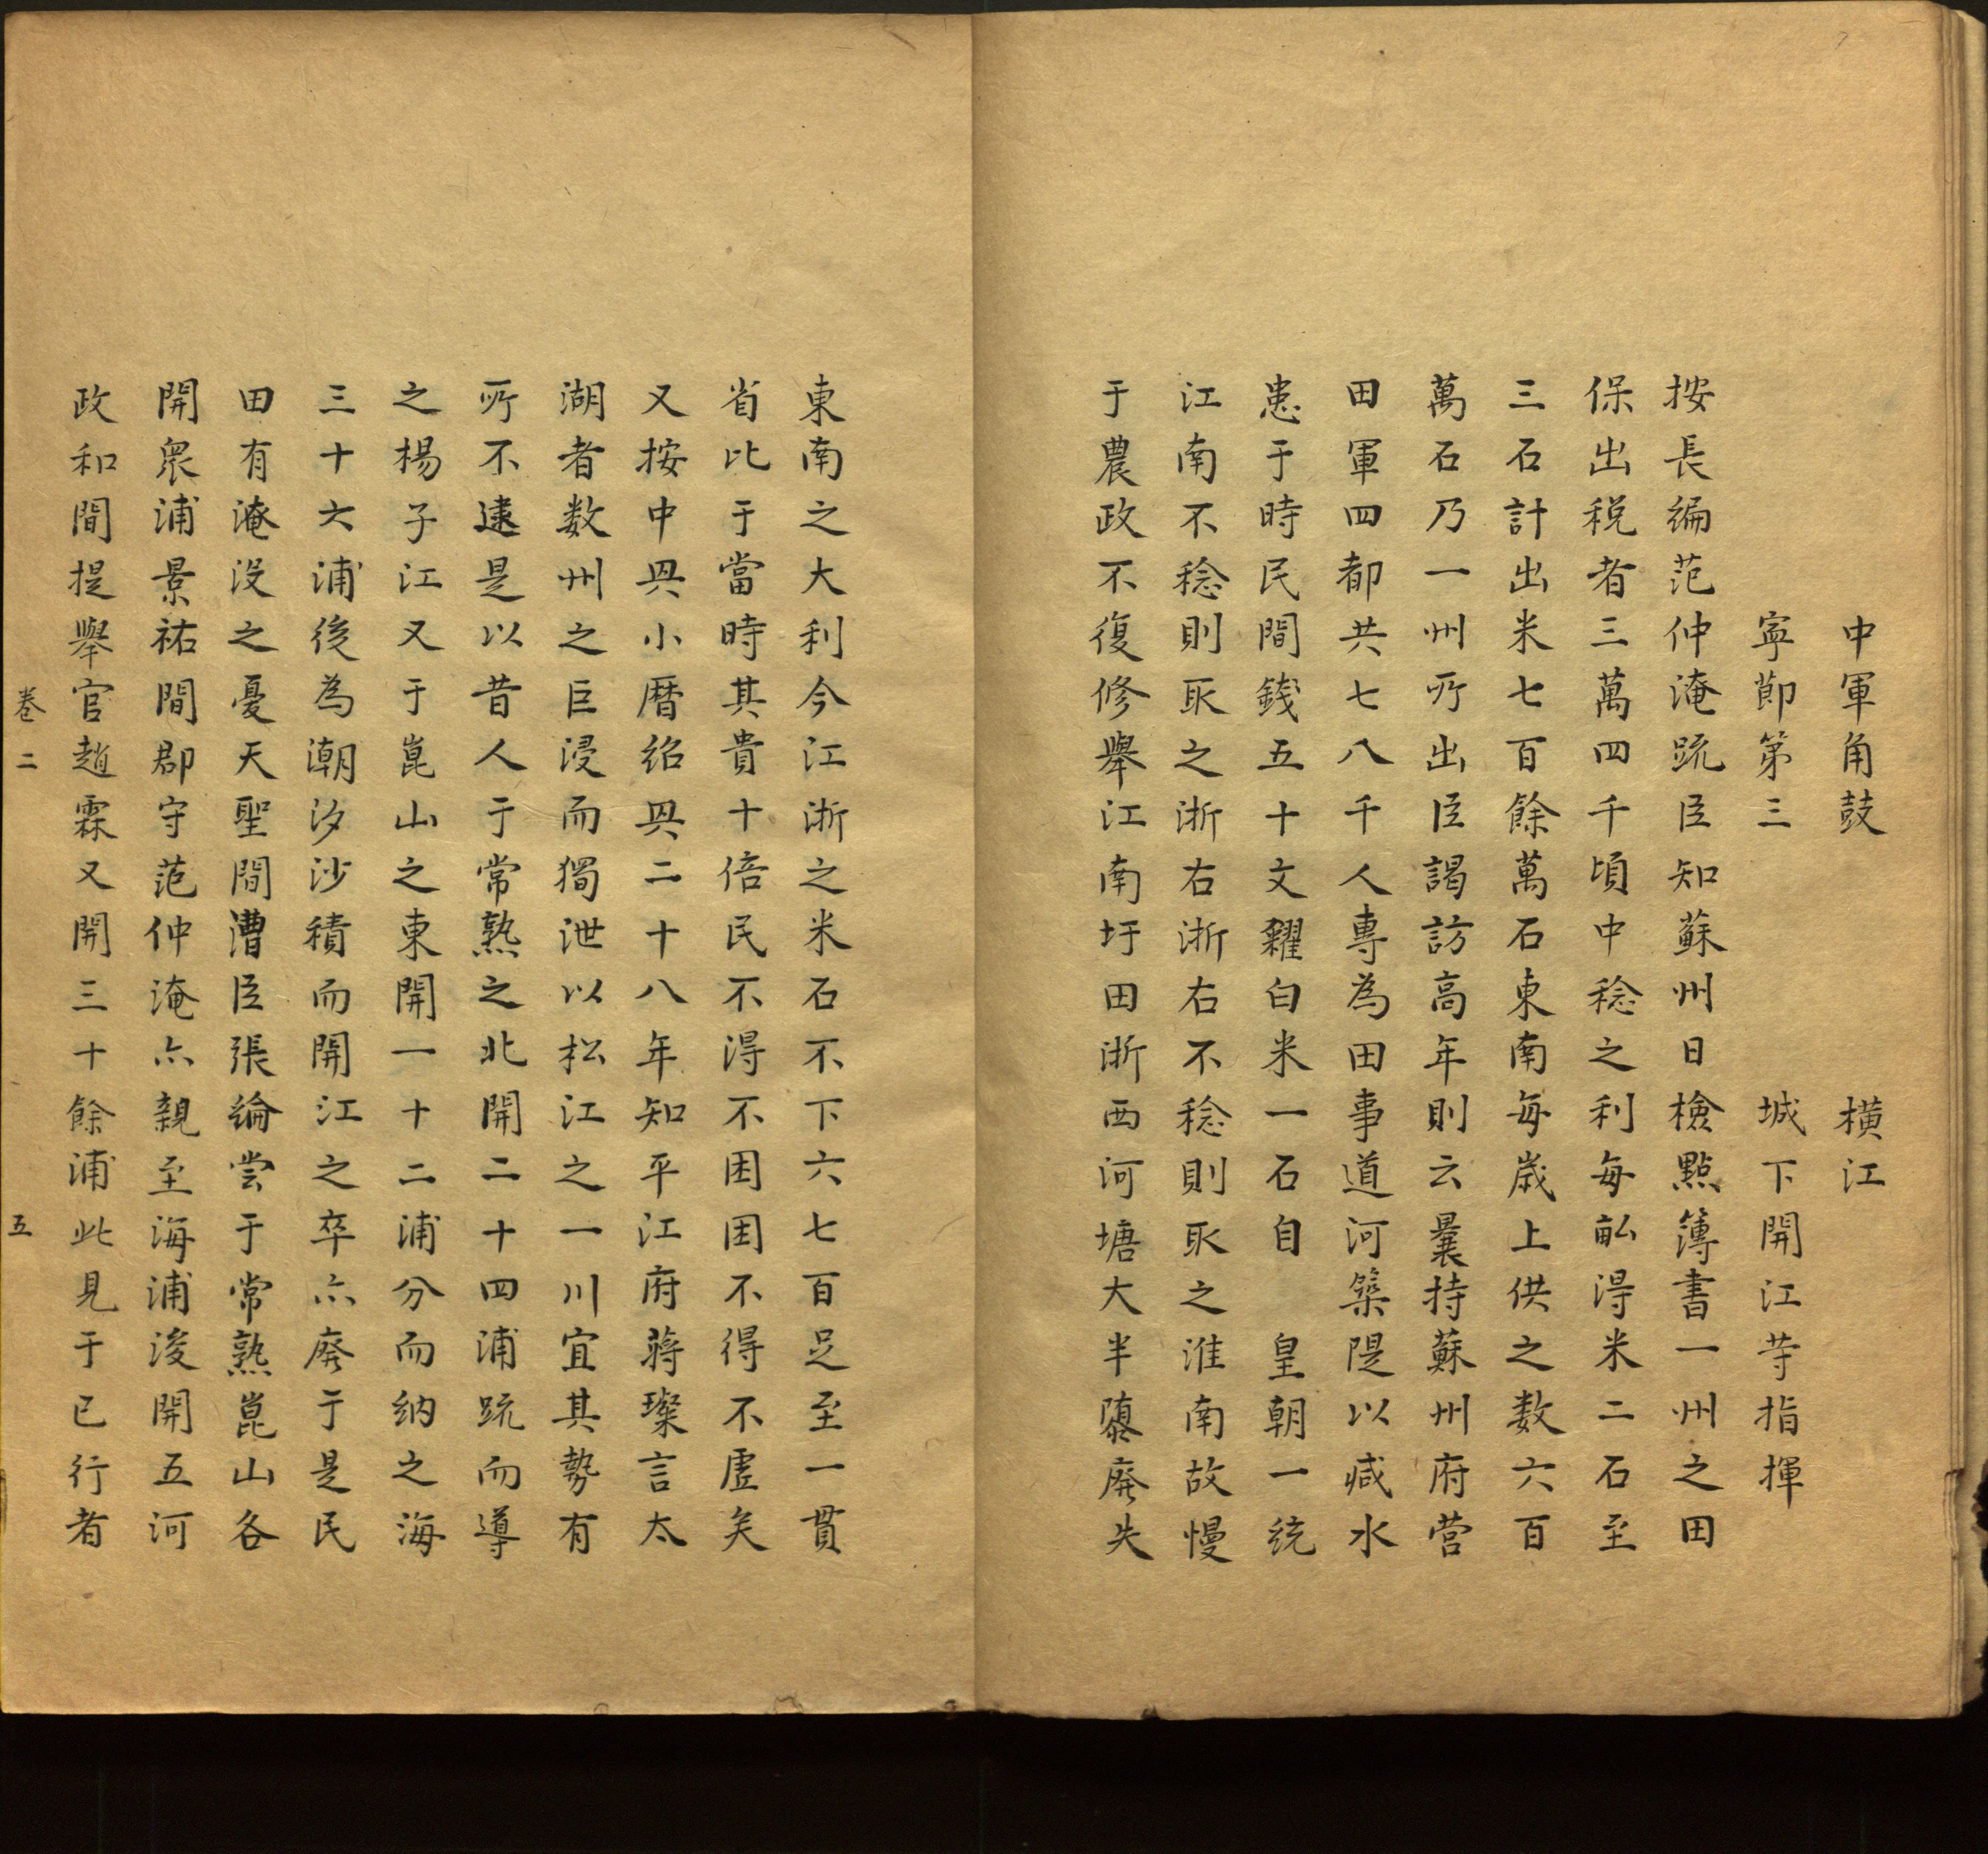 中軍角鼓　橫江
寧節第三　城下開江等指揮
按長編范仲淹䟽臣知蘇州日檢點簿書一州之田
保出税者三萬四千頃中稔之利每畝淂米二石至
三石計出米七百餘萬石東南每歲上供之数六百
萬石乃一州所出臣謁訪高年則云曩持蘇州府營
田軍四都共七八千人專為田事道河築隄以减水
患于時民間錢五十文糴白米一石自　皇朝一統
江南不稔則取之浙右浙右不稔則取之淮南故慢
于農政不復修舉江南圩田浙西河塘大半隳廢失
東南之大利今江浙之米石不下六七百足至一貫
省比于當時其貴十倍民不淂不困囯不得不虛矣
又按中興小曆紹興二十八年知平江府蔣璨言太
湖者数州之巨浸而獨泄以松江之一川宜其勢有
所不逮是以昔人于常熟之北開二十四浦䟽而導
之楊子江又于崑山之東開一十二浦分而纳之海
三十六浦後為潮汐沙積而開江之卒亦廢于是民
田有淹没之憂天聖間漕臣張綸尝于常熟崑山各
開衆浦景祐間郡守范仲淹亦親至海浦浚開五河
政和間提舉官趙霖又開三十餘浦此見于已行者
卷二　五